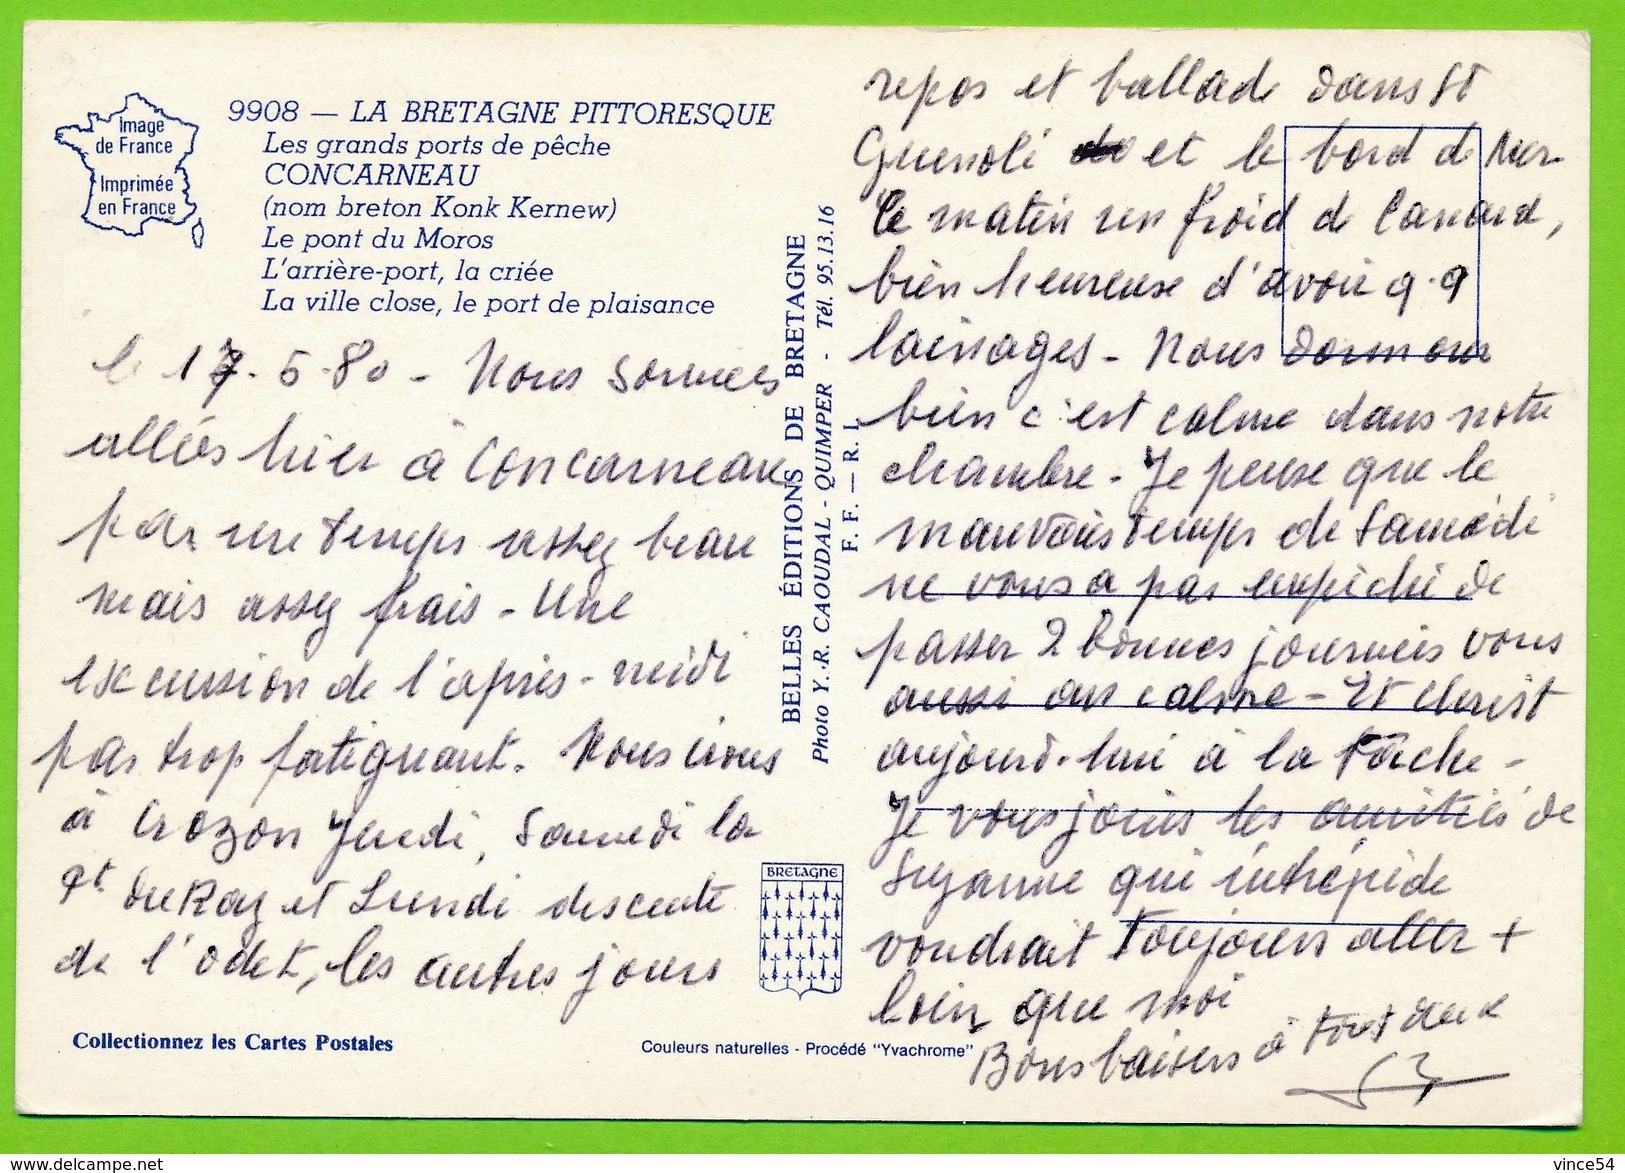 Image
de France
Imprimée
en France
9908 — LA BRETAGNE PITTORESQUE
Les grands ports de pêche
CONCARNEAU
(nom breton Konk Kernew)
Le pont du Moros
L'arrière-port, la criée
La ville close, le port de plaisance
le 17.6.80 - Nous sommes
allées hier à Concarneau
par un temps assez beau
mais assez frais - Une
excursion de l'après-midi
pas trop fatiguant. Nous irons
à Crozon Jeudi, Samedi la
Pt du Raz et Lundi descente
de l'Odet, les autres jours
Collectionnez les Cartes Postales
BELLES ÉDITIONS DE BRETAGNE
Photo Y.-R. CAOUDAL - QUIMPER - Tél. 95.13.16
F. F. — R. I.
BRETAGNE
Couleurs naturelles - Procédé "Yvachrome"
repos et ballade dans St
Guenolé et le bord de Mer
Ce matin un froid de Canard,
bien heureuse d'avoir q.q
lainages - Nous dormons
bien c'est calme dans notre
chambre - Je pense que le
mauvais temps de Samedi
ne vous a pas empêché de
passer 2 bonnes journées vous
aussi au calme - Et Christ
aujourd'hui à la tâche -
Je vous joins les amitiés de
Suzanne qui intrépide
voudrait toujours aller +
loin que moi
Bons baisers à tous deux
vince54